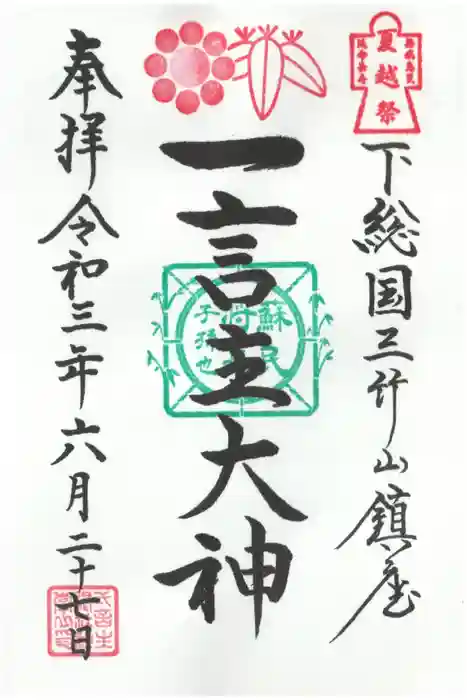 夏越祭
下総国三竹山鎮座
一言主大神
蘇民将
子孫也
奉拝
令和三年六月二十七日